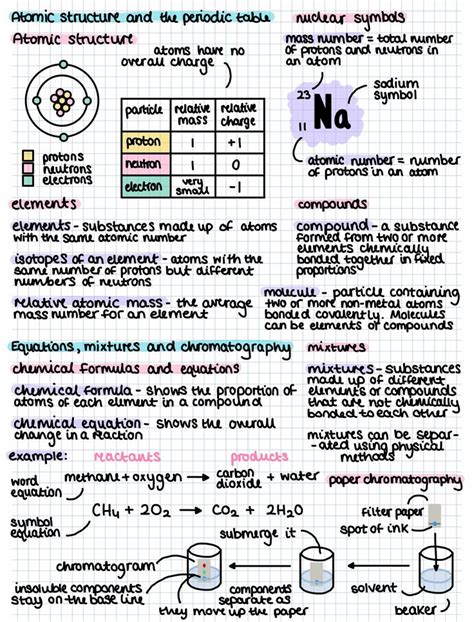 Atomic structure and the periodic table
Atomic structure
atoms have no
overall charge
protons
neutrons
electrons
particle relative mass relative charge
proton 1 +1
neutron 1 0
electron very small -1
nuclear symbols
mass number = total number
of protons and neutrons in
an atom
23
11
Na
sodium
symbol
atomic number = number
of protons in an atom
elements
elements - substances made up of atoms
with the same atomic number
isotopes of an element - atoms with the
same number of protons but different
numbers of neutrons
relative atomic mass - the average
mass number for an element
compounds
compound - a substance
formed from two or more
elements chemically
bonded together in fixed
proportions
molecule - particle containing
two or more non-metal atoms
bonded covalently. Molecules
can be elements or compounds
Equations, mixtures and chromatography
chemical formulas and equations
chemical formula - shows the proportion of
atoms of each element in a compound
chemical equation - shows the overall
change in a reaction
example: reactants products
word
equation
methane + oxygen → carbon dioxide + water
symbol
equation
CH4 + 2O2 → CO2 + 2H2O
mixtures
mixtures - substances
made up of different
elements or compounds
that are not chemically
bonded to each other
mixtures can be separ-
-ated using physical
methods
paper chromatography
filter paper
spot of ink
submerge it
chromatogram
insoluble components
stay on the base line
components
separate as
they move up the paper
solvent
beaker